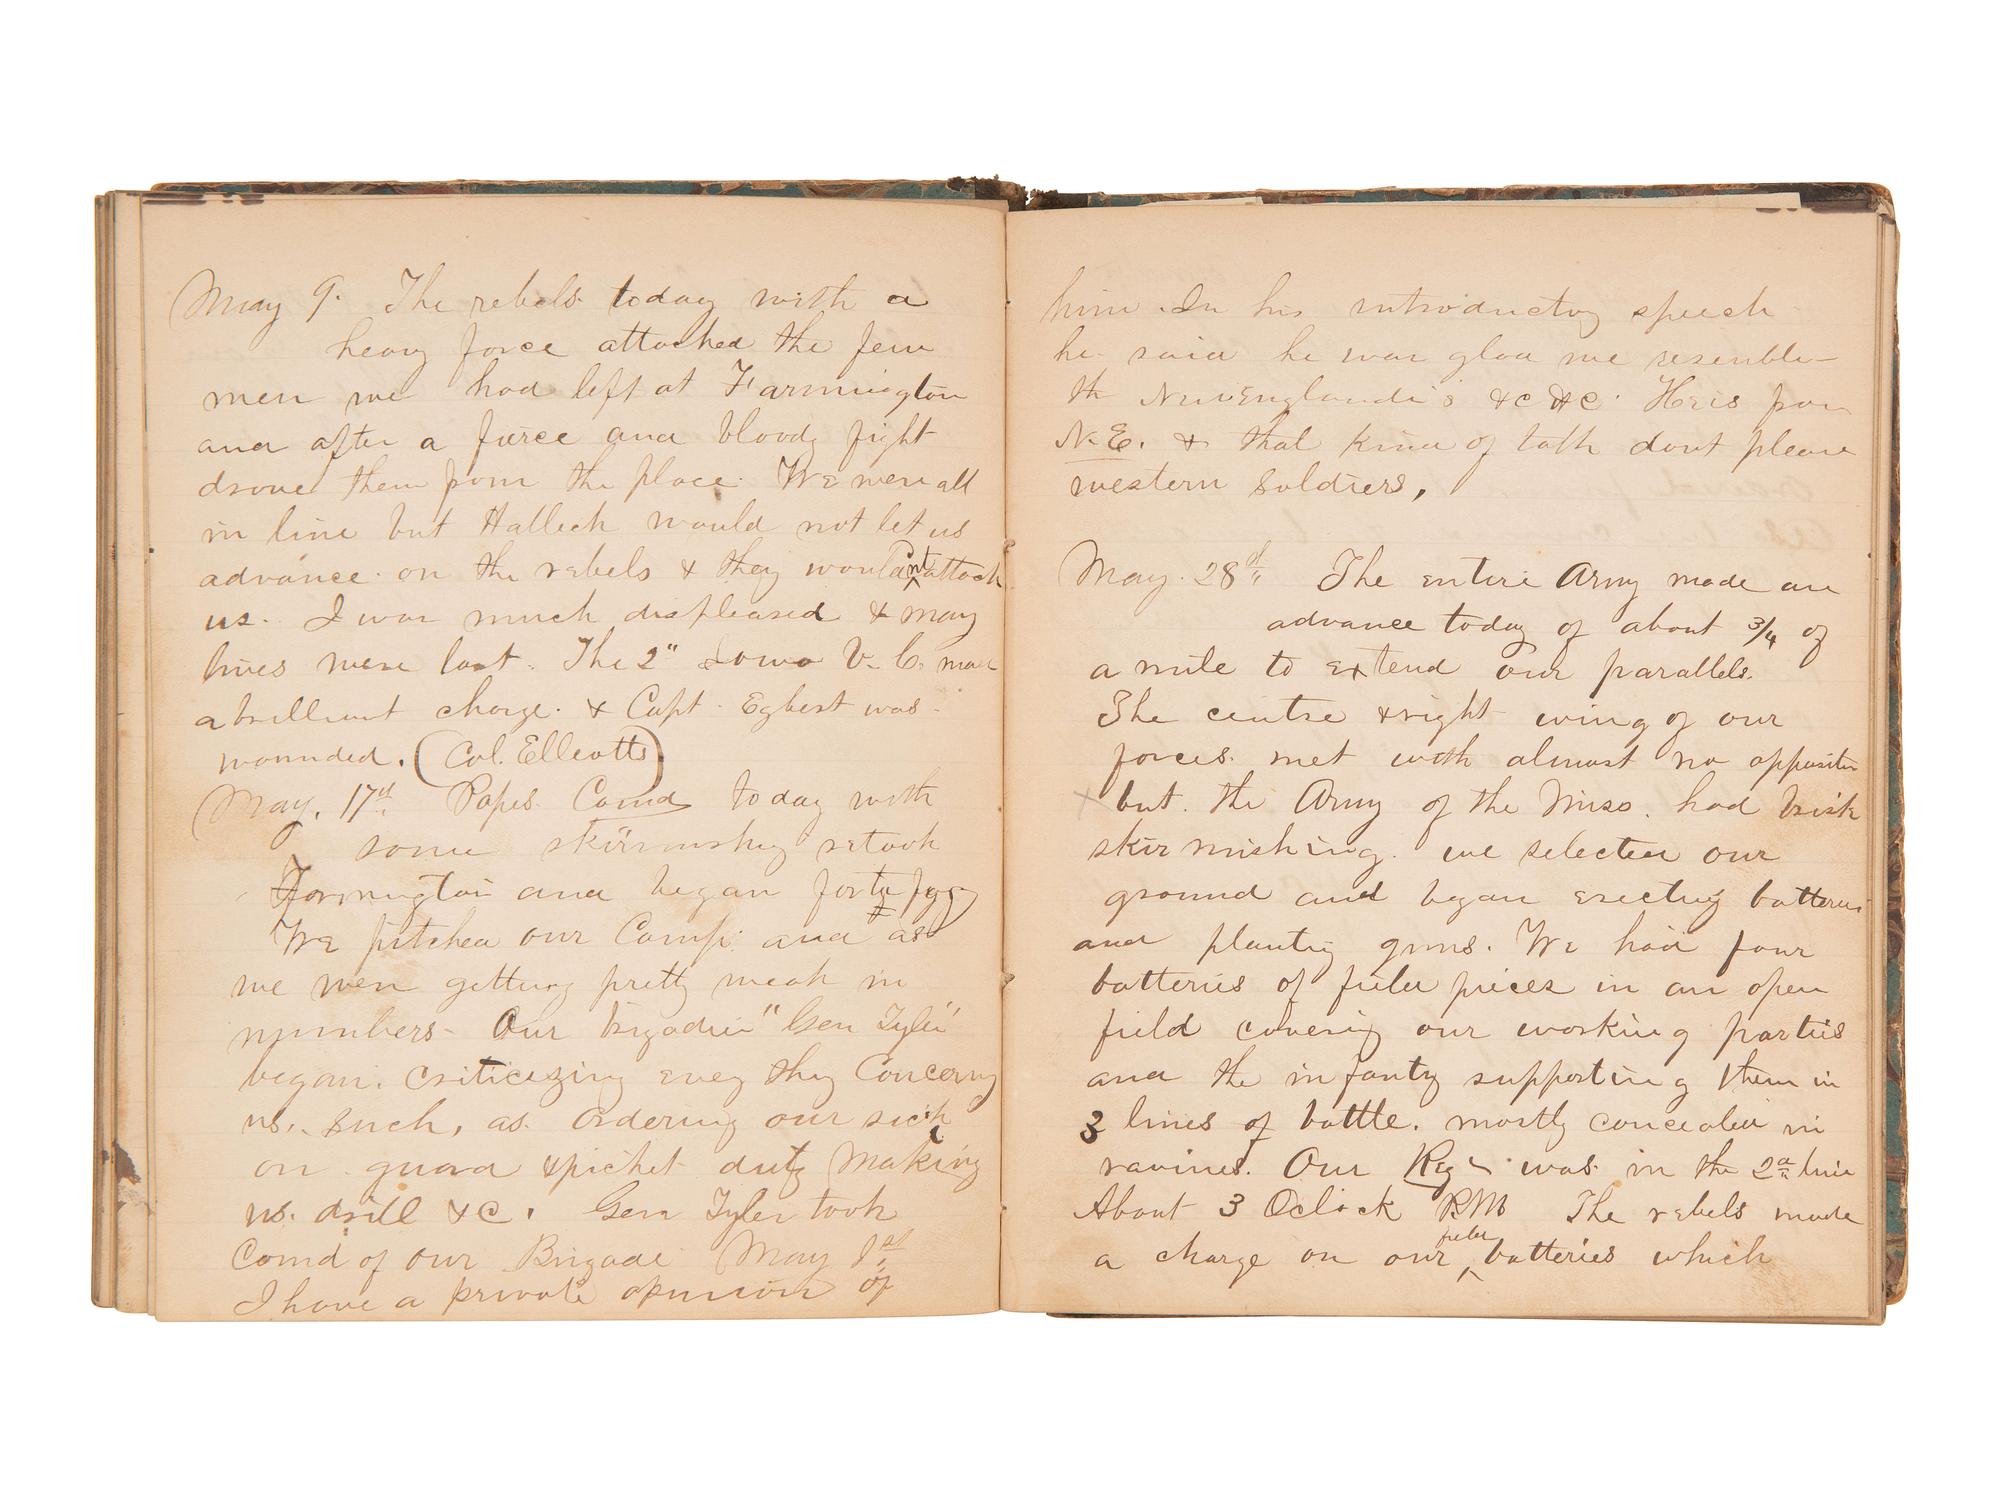 May 9. The rebels today with a
heavy force attacked the few
men we had left at Farmington
and after a fierce and bloody fight
drove them from the place. We were all
in line but Halleck would not let us
advance on the rebels & they would nt attack
us. I was much displeased & many
lives were lost. The 2" Iowa V. C. made
a brilliant charge. & Capt. Egbert was
wounded. (Col. Elliotts)
May, 17th Popes Comd today with
some skirmishg retook
Farmington and began fortifyg
We pitched our Camp. and as
we were getting pretty weak in
numbers - Our brigadier "Gen Tyler"
began. criticizing evey thg Concerng
us, such, as. ordering our sick
on guard & picket duty Making
us. drill &C. Gen Tyler took
Comd of our Brigade May 1st
I have a private opinion of
him. In his introductoy speech
he said he was glad we resemble
th NewEnglander's &C &C. He is from
N.E. & that kind of talk dont please
western soldiers,
May. 28th The entire Army made an
advance today of about 3/4 of
a mile to extend our parallels.
The centre & right wing of our
forces. met with almost no oppositn
× but. the Army of the Miss. had brisk
skirmishing. we selected our
ground and began erectig batteries
and plantig guns. We had four
batteries of field pieces in an open
field coverig our working parties
and the infanty supporting them in
3 lines of battle. mostly concealed in
ravines. Our Regt was in the 2d line
About 3 Oclock P.M The rebels made
a charge on our field batteries which